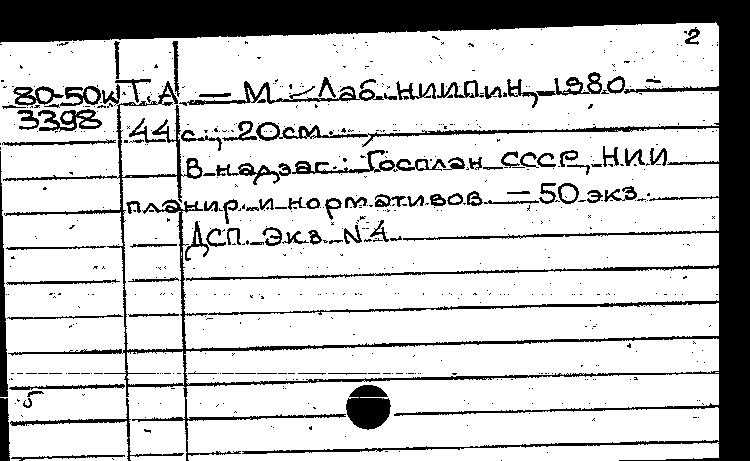 2
80-50к Т.А. — М.: Лаб. НИИПиН, 1980. —
3398 44 с.; 20см.
В надзаг.: Госплан СССР, НИИ
планир. и нормативов. — 50 экз.
ДСП. Экз. N 4.
5